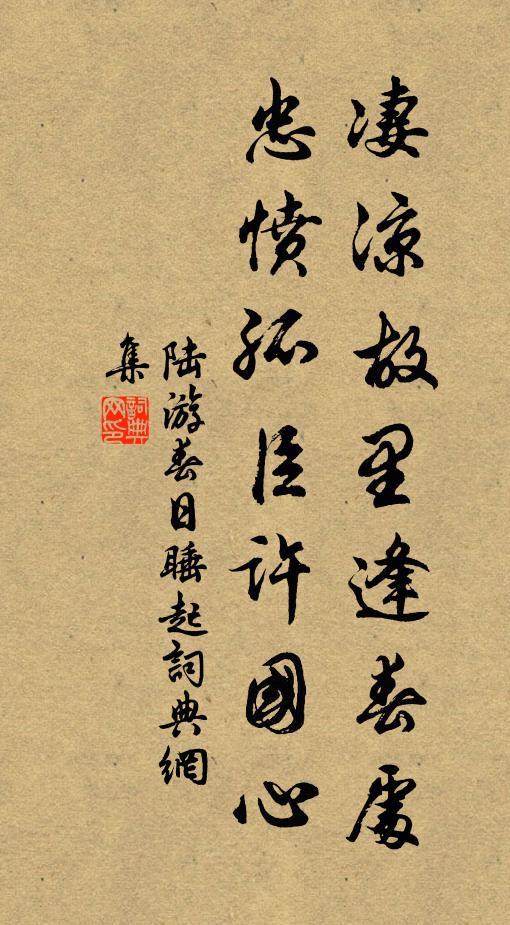 淒涼故里逢春處
忠憤孤臣許國心
陆游春日睡起詞典網
集
詞典网印